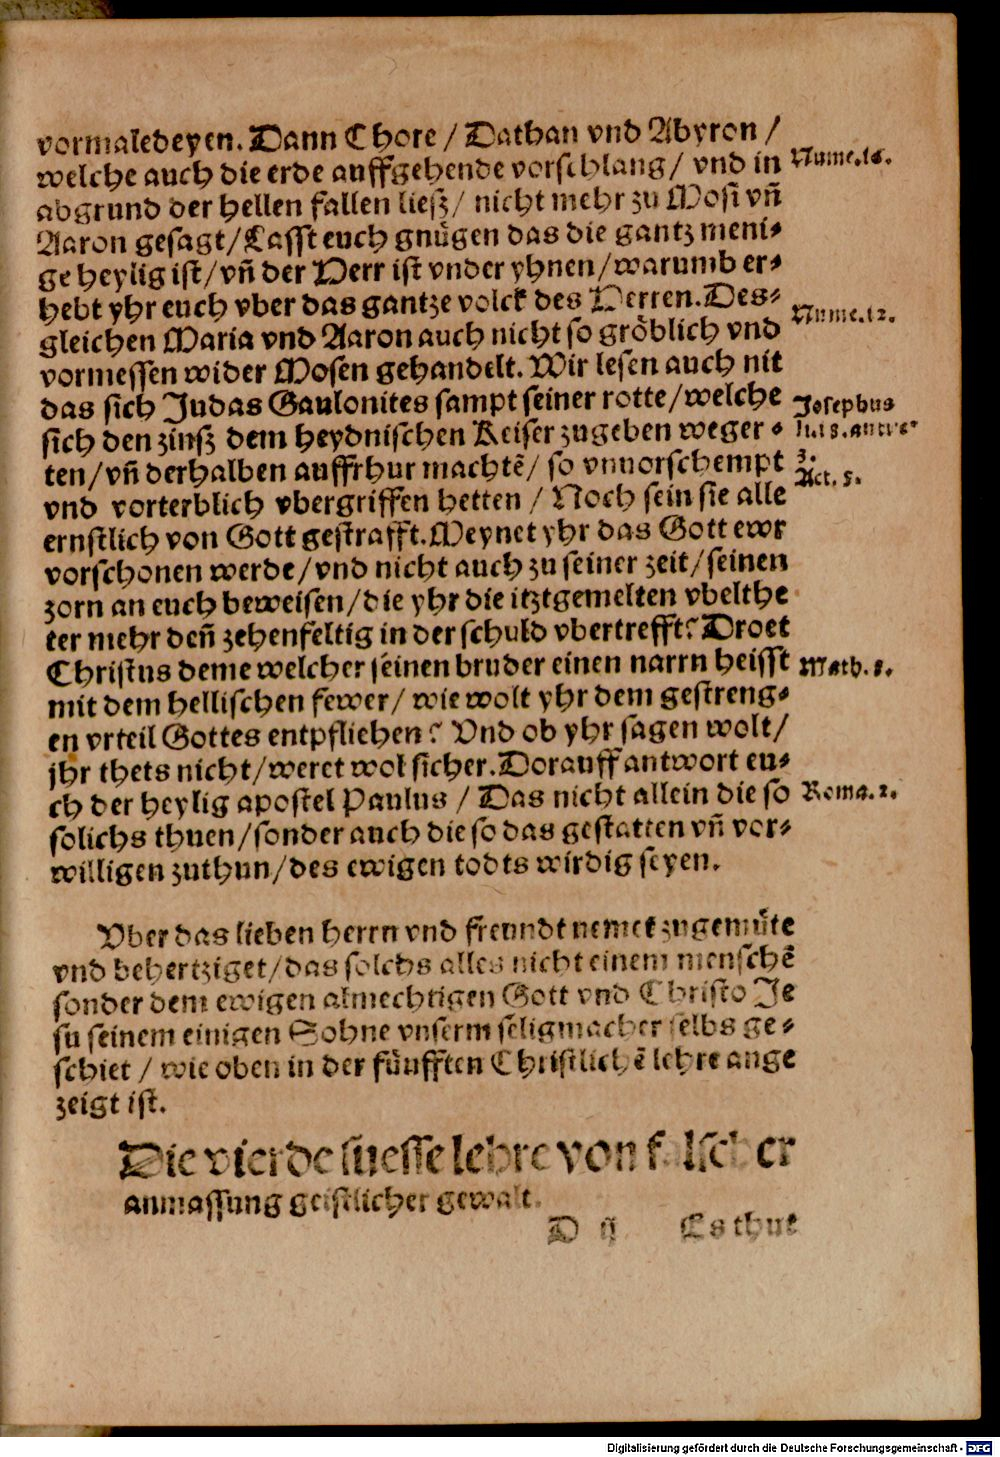 vormaledeyen. Dann Chore / Dathan vnd Abyron /
welche auch die erde auffgehende vorschlang / vnd in
Nume.16.
abgrund der hellen fallen liesz / nicht mehr zu Mosi vñ
Aaron gesagt / Lasst euch gnůgen das die gantz meni-
ge heylig ist / vñ der Herr ist vnder yhnen / warumb er-
hebt yhr euch vber das gantze volck des Herren. Des-
Nume.12.
gleichen Maria vnd Aaron auch nicht so gröblich vnd
vormessen wider Mosen gehandelt. Wir lesen auch nit
das sich Judas Gaulonites sampt seiner rotte / welche
Josephus
sich den zinsz dem heydnischen Keiser zugeben weger-
ten / vñ derhalben auffrhur machtē / so vnuorschempt
vnd vorterblich vbergriffen hetten / Noch sein sie alle
Act. 5.
ernstlich von Gott gestrafft. Meynet yhr das Gott ewr
vorschonen werde / vnd nicht auch zu seiner zeit / seinen
zorn an euch beweisen / die yhr die itztgemelten vbelthe
ter mehr deñ zehenfeltig in der schuld vbertrefft? Droet
Christus deme welcher seinen bruder einen narrn heisst
Math. 5.
mit dem hellischen fewer / wie wolt yhr dem gestreng-
en vrteil Gottes entpfliehen? Vnd ob yhr sagen wolt /
jhr thets nicht / weret wol sicher. Dorauff antwort eu-
ch der heylig apostel Paulus / Das nicht allein die so
Roma. 1.
solichs thuen / sonder auch die so das gestatten vñ vor-
willigen zuthun / des ewigen todts wirdig seyen.
Vber das lieben herrn vnd freundt nemet zugemůte
vnd behertziget / das solchs alles nicht einem menschē
sonder dem ewigen almechtigen Gott vnd Christo Je
su seinem einigen Sohne vnserm seligmacher selbs ge-
schiet / wie oben in der fůnfften Christlichē lehre ange
zeigt ist.
Die vierde suesse lehre von falscher
anmassung geistlicher gewalt.
D ij Es thut
Digitalisierung gefördert durch die Deutsche Forschungsgemeinschaft - DFG